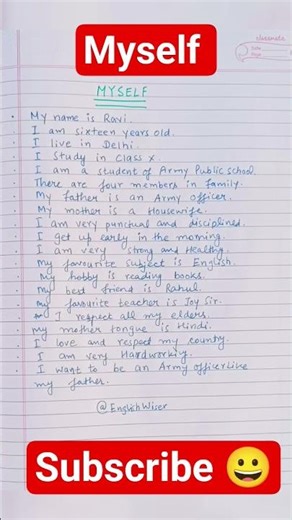 Myself
MYSELF
My name is Ravi.
I am sixteen years old.
I live in Delhi.
I study in class x.
I am a student of Army Public school.
There are four members in family.
My father is an Army officer.
My mother is a Housewife.
I am very punctual and disciplined.
I get up early in the morning.
I am very strong and Healthy.
My favourite subject is English.
My hobby is reading books.
My best friend is Rahul.
My favourite teacher is Joy Sir.
I respect all my elders.
my mother tongue is Hindi.
I love and respect my country.
I am very Hardworking.
I want to be an Army officer Like
my father.
@EnglishWiser
Subscribe 😀